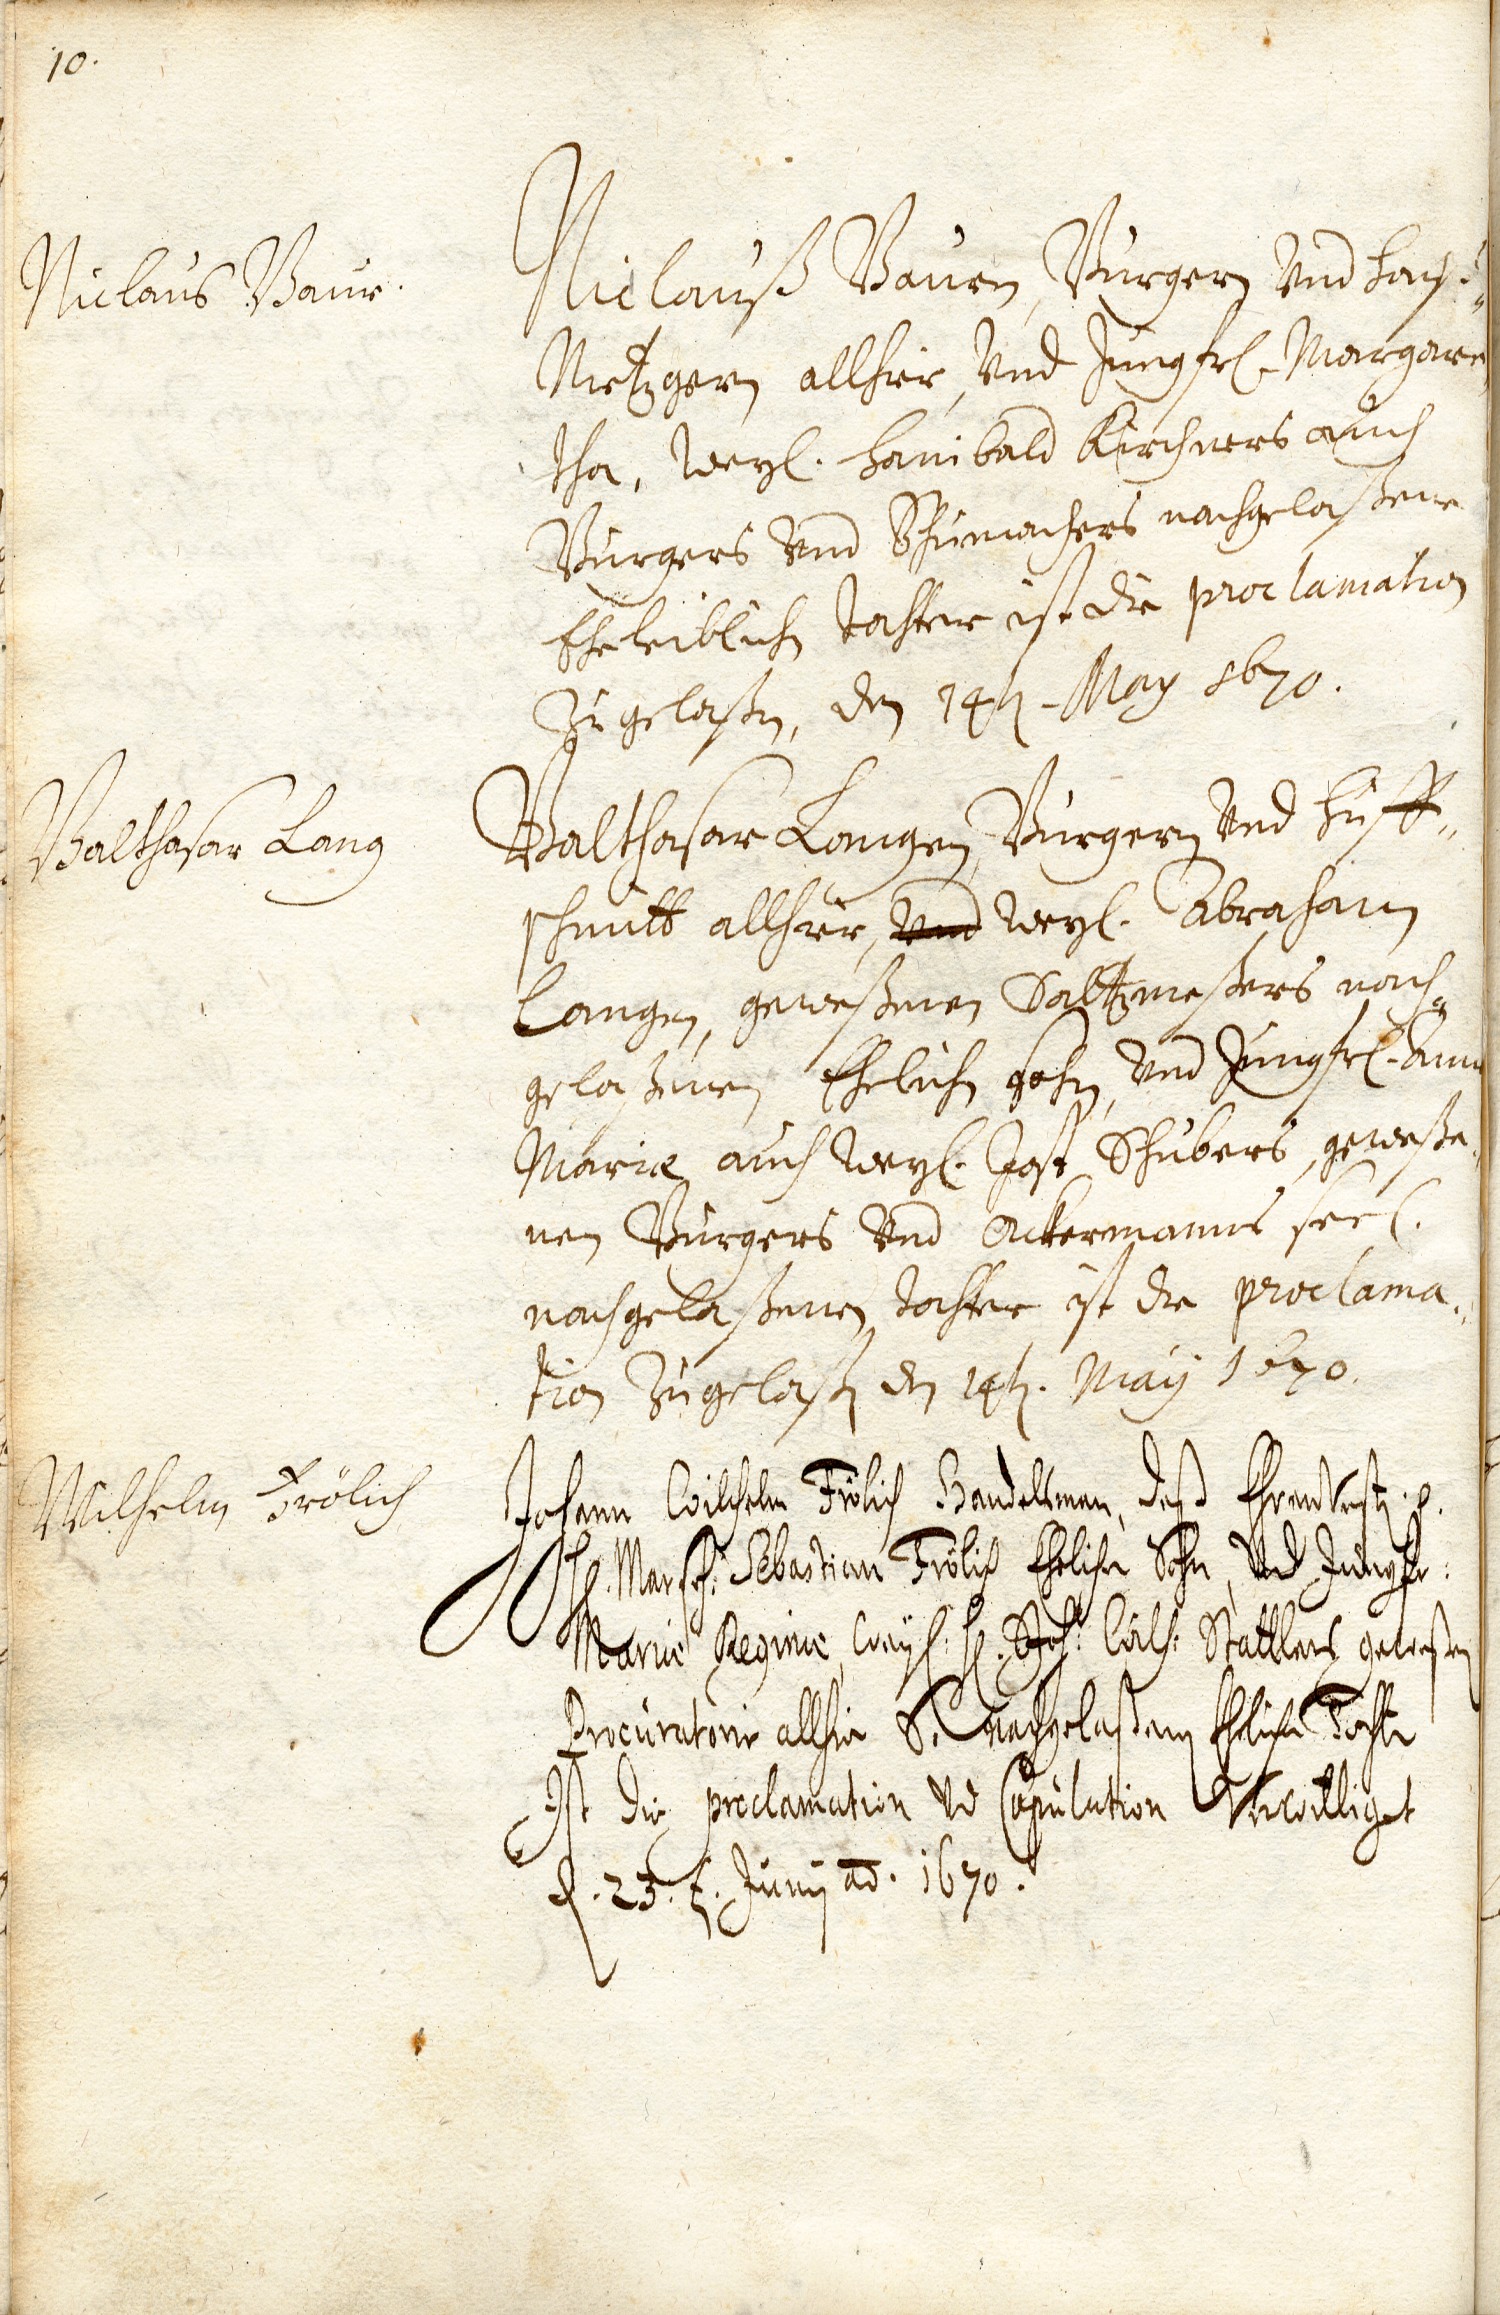 10.
Niclaus Baur.
Niclauß Bauren, Burgern Vnd Hoch-
Metzgern allhier, Vnd Jungfrl. Margare
tha, Weyl. Hanibald Kirchners auch
Burgers Vnd Schumachers nachgelaßene
Eheleiblichn Tochter ist die proclamation
Zugelaßn, den 14t. May 1670.
Balthasar Lang
Balthasar Langen, Burgern Vnd Huff„
schmitt allhier, Vnd Weyl. Abraham
Langen, geweßenen Saltzmeßers nach
gelaßenen Ehelichn Sohn, Vnd Jungfrl. Anna
Mariæ auch Weyl. Jost Schubers, geweße„
nen Burgers Vnd Ackermanns seel.
nachgelaßenen Tochter ist die proclama„
tion Zugelaßn den 14t. May 1670.
Wilhelm Frölich
Johann Wilhelm Frölich Handelsman, deß Ehrenvest. p.
H. Sebastian Frölich Ehelichn Sohn, Vnd Jungfr:
Mariæ Reginæ, Weyl: H. Joh: Stattlers geweßen
Procuratoris allhie S. nachgelaßenen Ehelichn Tochter
Ist die proclamation Vnd Copulation Verwilliget
d. 23. t. Junij ao. 1670.